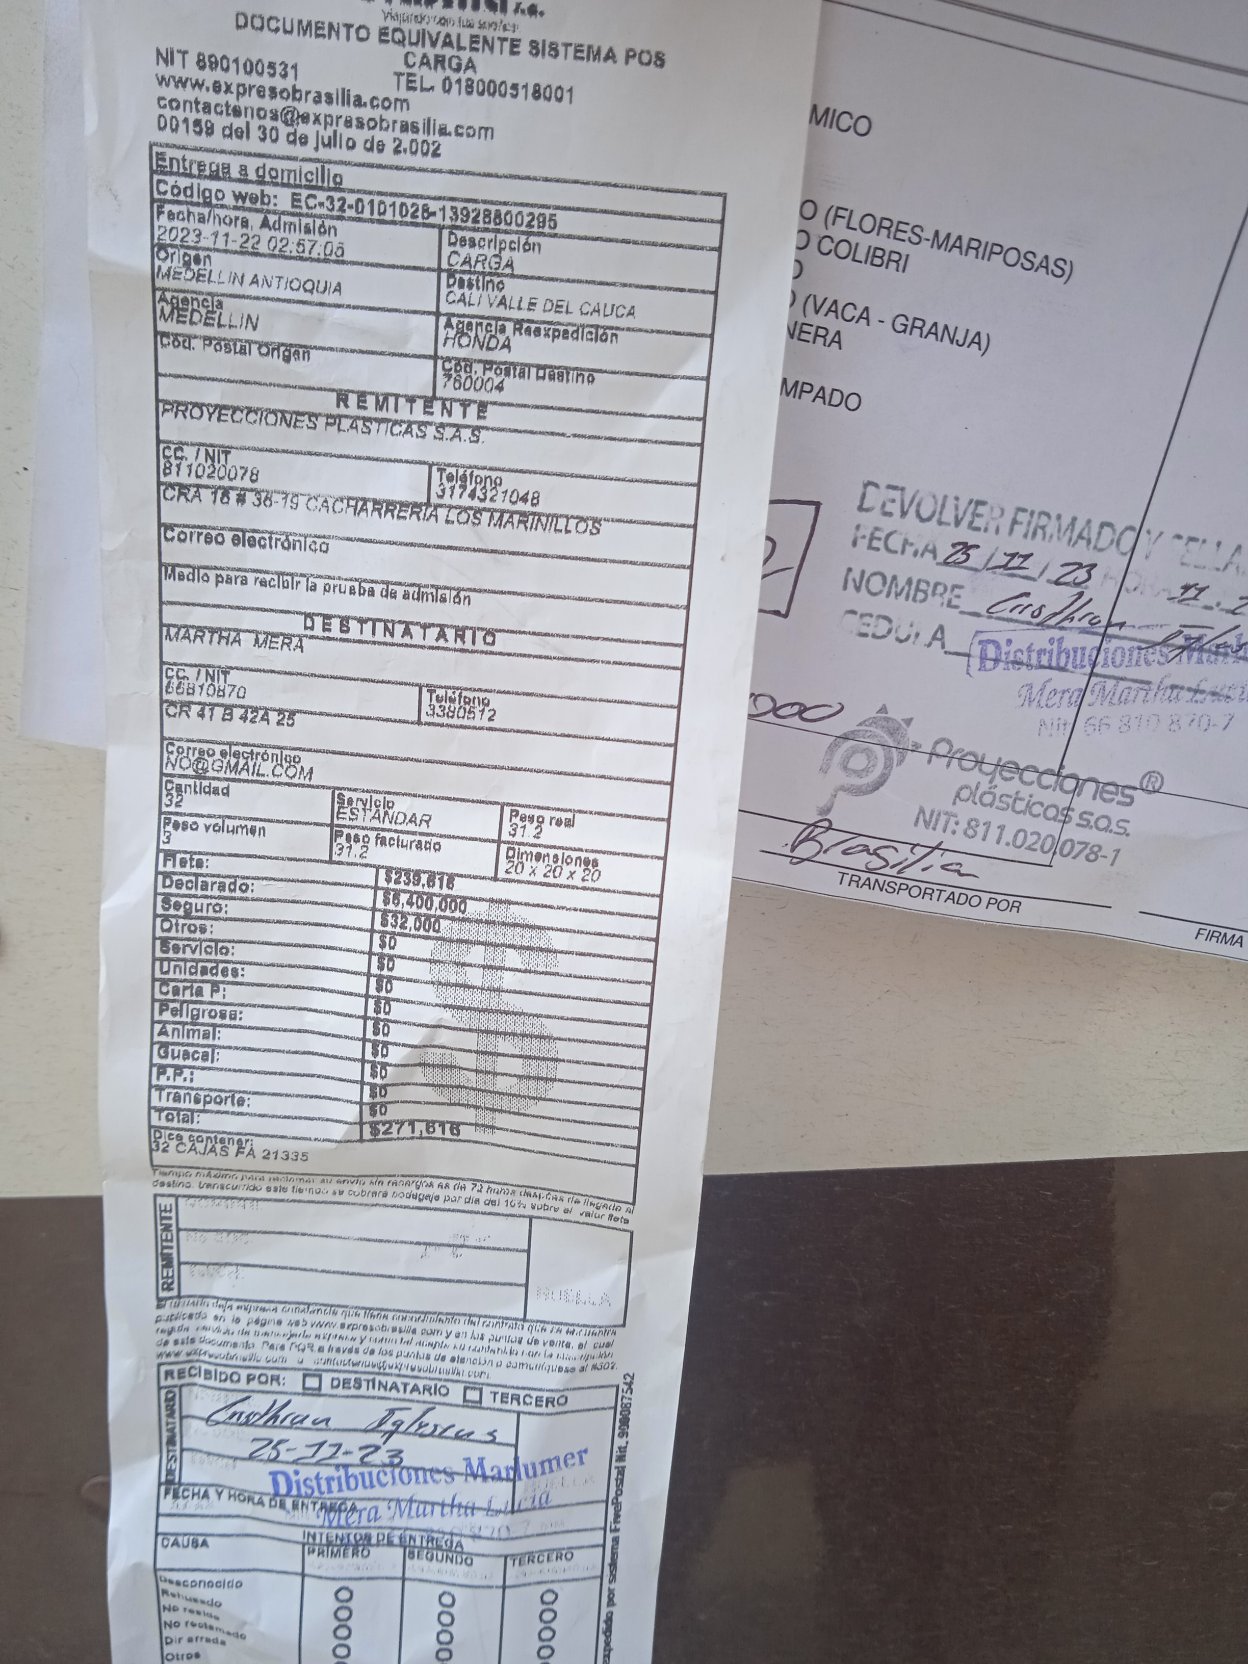 Viajando con tus sueños
DOCUMENTO EQUIVALENTE SISTEMA POS
CARGA
NIT 890100531 TEL. 018000518001
www.expresobrasilia.com
contactenos@expresobrasilia.com
00159 del 30 de julio de 2.002
Entrega a domicilio
Código web: EC-32-0101026-13928800295
Fecha/hora. Admisión
2023-11-22 02:57:05
Descripción
CARGA
Origen
MEDELLIN ANTIOQUIA
Destino
CALI VALLE DEL CAUCA
Agencia
MEDELLIN
Agencia Reexpedición
HONDA
Cód. Postal Origen
Cód. Postal Destino
760004
REMITENTE
PROYECCIONES PLASTICAS S.A.S.
CC. / NIT
811020078
Teléfono
3174321048
CRA 16 # 36-19 CACHARRERIA LOS MARINILLOS
Correo electrónico
Medio para recibir la prueba de admisión
DESTINATARIO
MARTHA MERA
CC. / NIT
66810870
Teléfono
3380512
CR 41 B 42A 25
Correo electrónico
NO@GMAIL.COM
Cantidad
32
Servicio
ESTANDAR
Peso real
31.2
Peso volumen
3
Peso facturado
31.2
Dimensiones
20 x 20 x 20
Flete: $239,616
Declarado: $6,400,000
Seguro: $32,000
Otros: $0
Servicio: $0
Unidades: $0
Carta P: $0
Peligrosa: $0
Animal: $0
Guacal: $0
P.P.: $0
Transporte: $0
Total: $271,616
Dice contener:
32 CAJAS FA 21335
Tiempo máximo para reclamar su envío sin recargos es de 72 horas después de llegado al
destino, transcurrido este tiempo se cobrara bodegaje por día del 10% sobre el valor flete
REMITENTE
HUELLA
de este documento. Para PQR a través de los puntos de atención o comuníquese al #502.
RECIBIDO POR: DESTINATARIO TERCERO
DESTINATARIO
Cristhian Iglesias
25-11-23
Distribuciones Marlumer
Mera Martha Lucia
FECHA Y HORA DE ENTREGA
CAUSA
INTENTOS DE ENTREGA
PRIMERO SEGUNDO TERCERO
Desconocido
Rehusado
No reside
No reclamado
Dir errada
Otros
por sistema FivePostal Nit. 900087542
MICO
O (FLORES-MARIPOSAS)
O COLIBRI
O
(VACA - GRANJA)
NERA
MPADO
DEVOLVER FIRMADO Y SELLA
FECHA 25/11/23 HORA 11:2
NOMBRE Cristhian
CEDULA
Distribuciones Marl
Mera Martha Lucia
Nit: 66 810 870-7
000
Proyecciones®
plásticas s.a.s.
NIT: 811.020.078-1
Brasilia
TRANSPORTADO POR
FIRMA